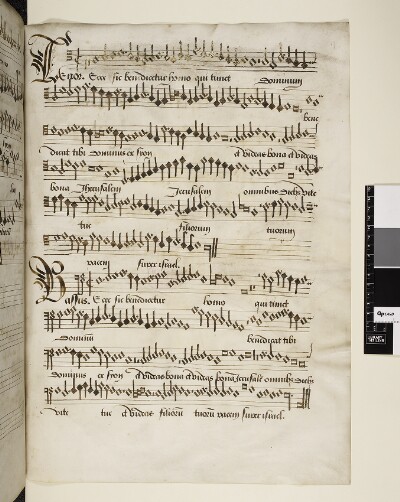 Tenor. Ecce sic benedicetur homo qui timet Dominum
bene
dicat tibi dominus ex syon et videas bona et videas
bona Jherusalem Jerusalem omnibus diebus vite
tue filiorum tuorum
pacem super israel.
Bassus. Ecce sic benedicetur homo qui timet
Dominum benedicat tibi
Dominus ex syon et videas bona et videas bona omnibus
vite tue et videas filiorum tuorum pacem super israel.